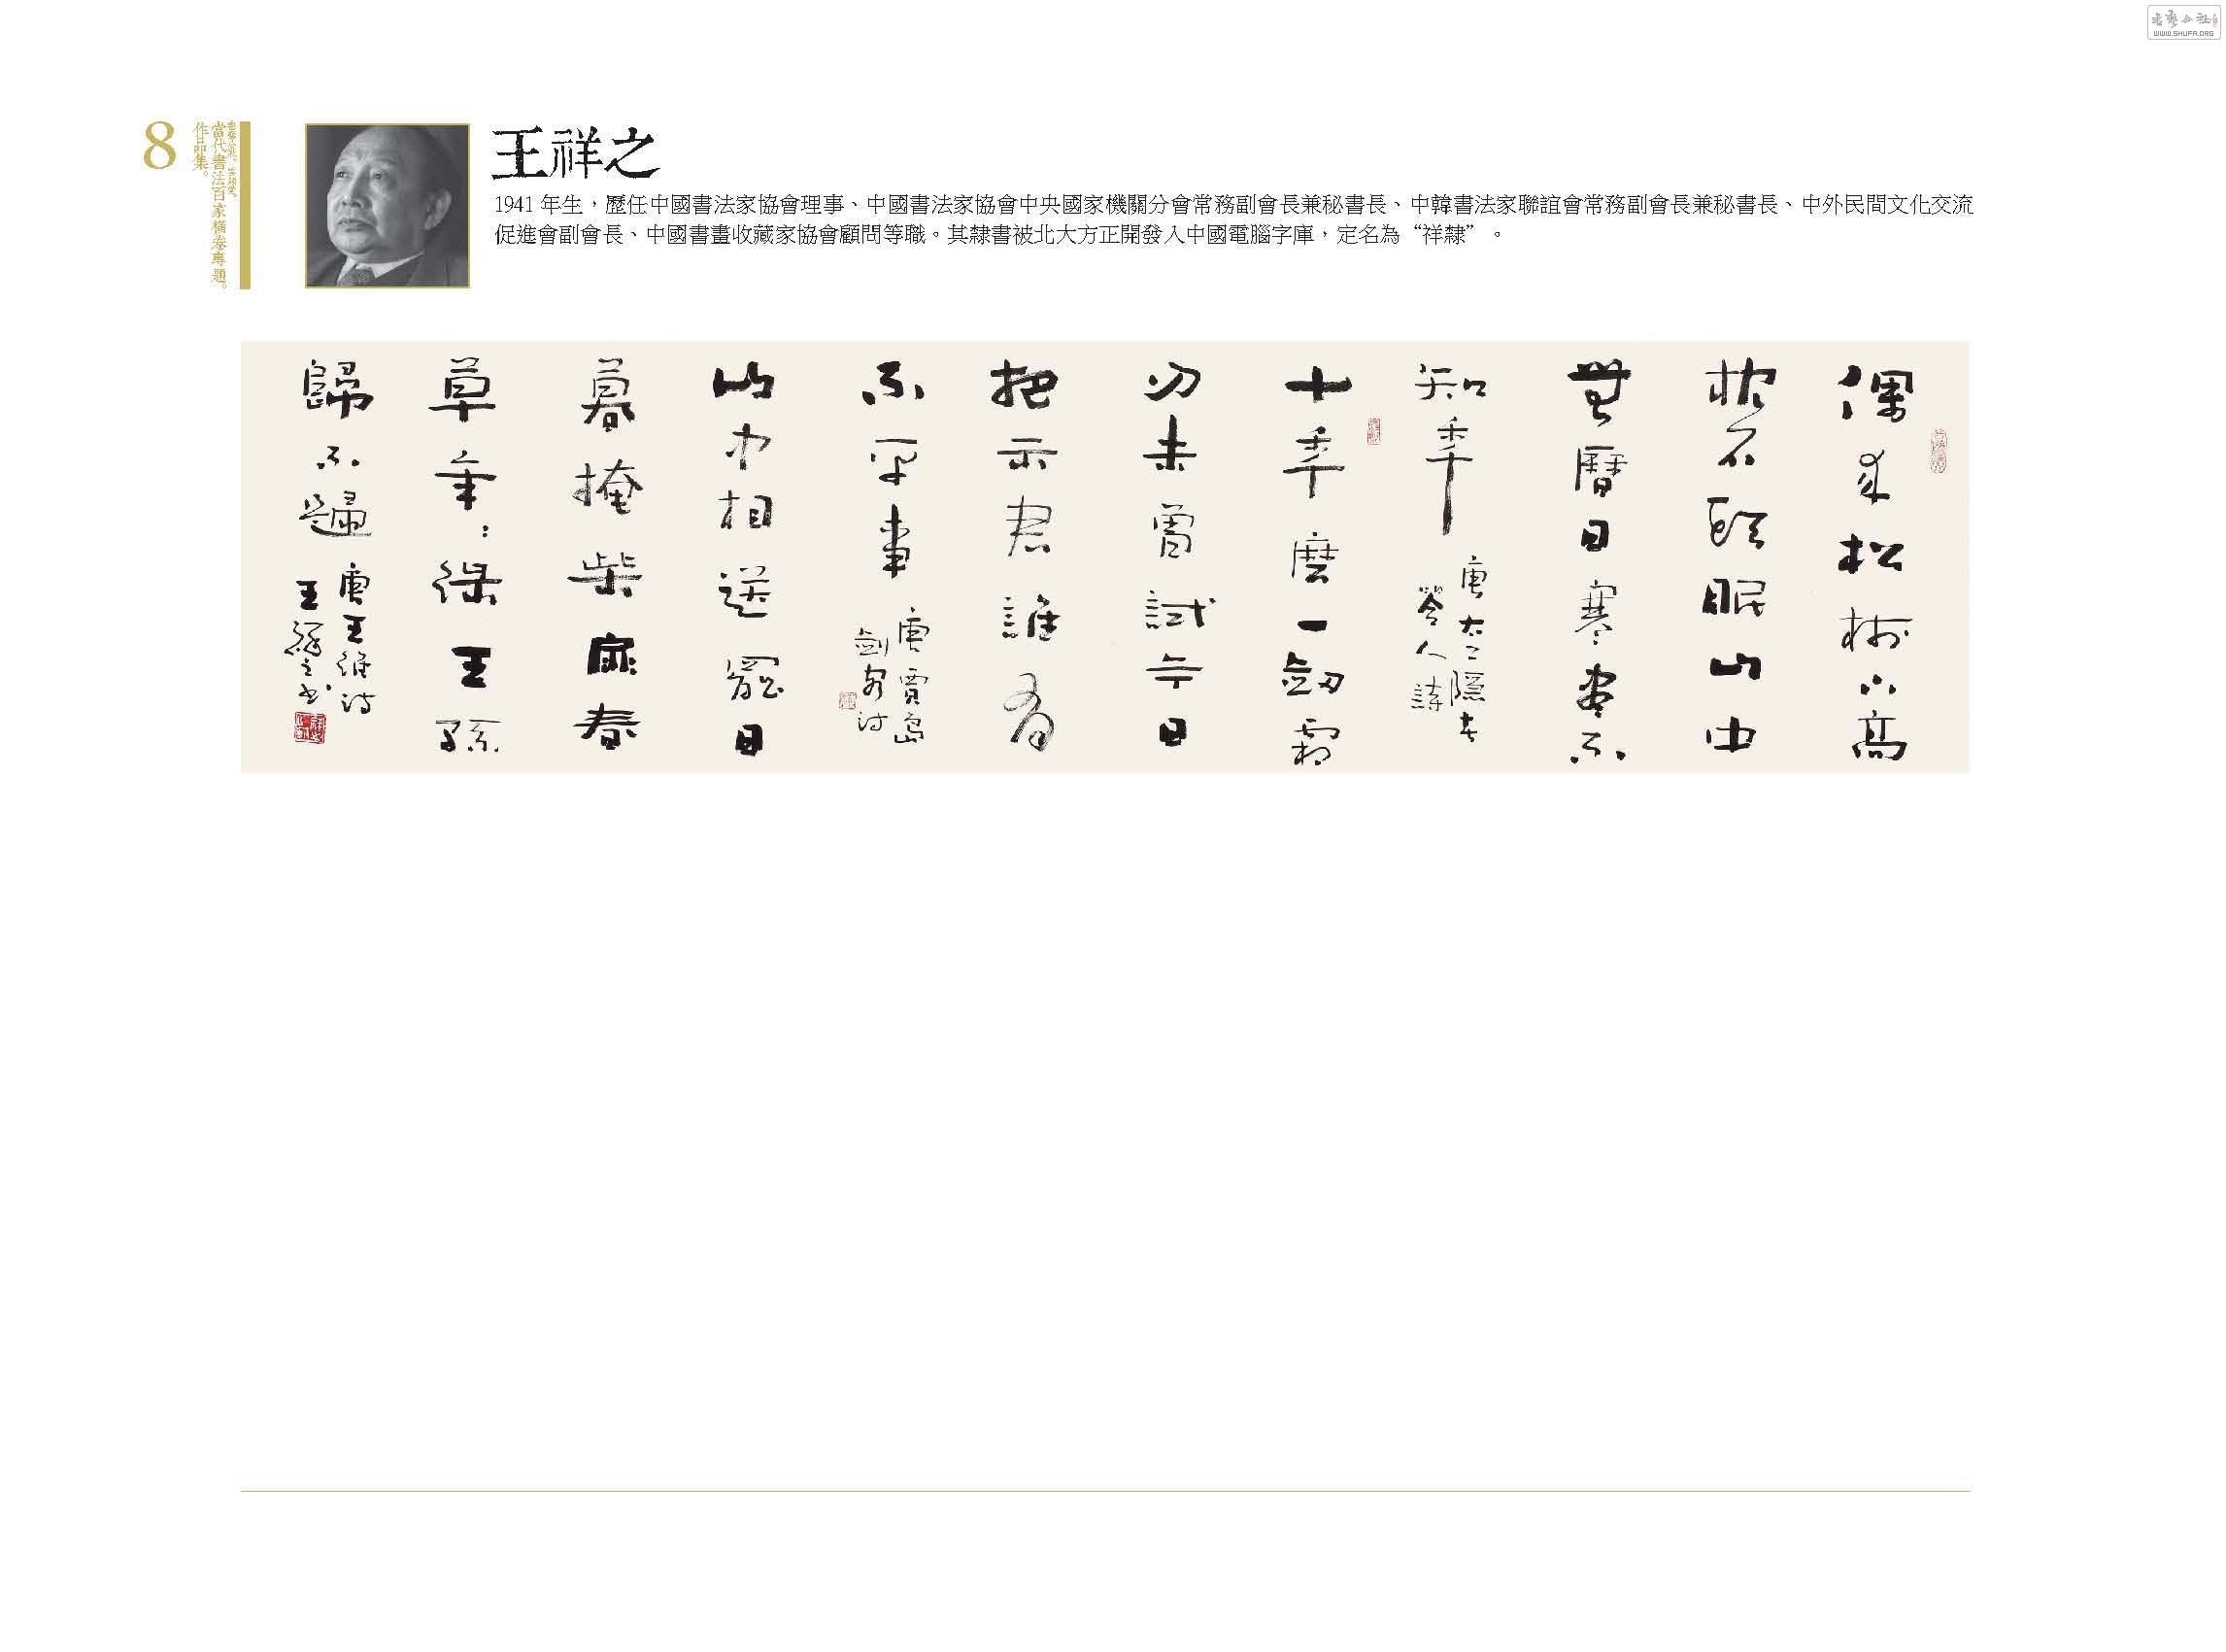 书艺公社
WWW.SHUFA.ORG
8
當代書法百家橫卷專題。
作品集。
王祥之
1941 年生，歷任中國書法家協會理事、中國書法家協會中央國家機關分會常務副會長兼秘書長、中韓書法家聯誼會常務副會長兼秘書長、中外民間文化交流
促進會副會長、中國書畫收藏家協會顧問等職。其隸書被北大方正開發入中國電腦字庫，定名為“祥隸”。
偶來松樹下高
枕石頭眠山中
無曆日寒盡不
知年
唐太上隱者
答人詩
十年磨一劍霜
刃未曾試今日
把示君誰有
不平事
唐賈島
劍客詩
山中相送罷日
暮掩柴扉春
草年〻綠王孫
歸不歸
唐王維詩
王祥之書